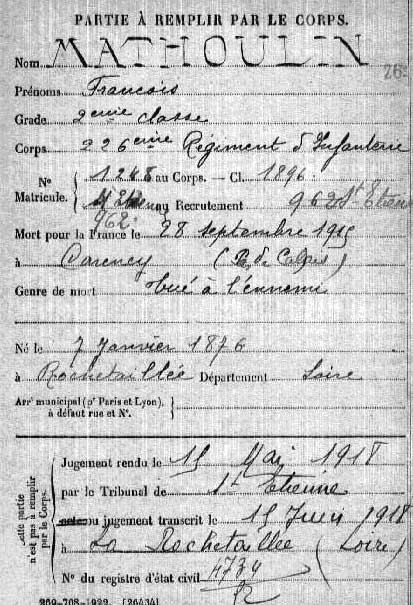 PARTIE À REMPLIR PAR LE CORPS.
Nom MATHOULIN
Prénoms Francois
Grade 2eme classe
Corps 226eme Régiment d'Infanterie
N° Matricule. 1248 au Corps. — Cl. 1896
962 au Recrutement 962 St Etienne
Mort pour la France le 28 septembre 1915
à Carency (P. de Calais)
Genre de mort tué à l'ennemi
Né le 7 Janvier 1876
à Rochetaillée Département Loire
Arrt municipal (pr Paris et Lyon),
à défaut rue et N°.
Cette partie
n'est pas à remplir
par le Corps.
Jugement rendu le 15 Mai 1918
par le Tribunal de St Etienne
acte ou jugement transcrit le 15 Juin 1918
à La Rochetaillée (Loire)
N° du registre d'état civil
269-708-1922. [26434]